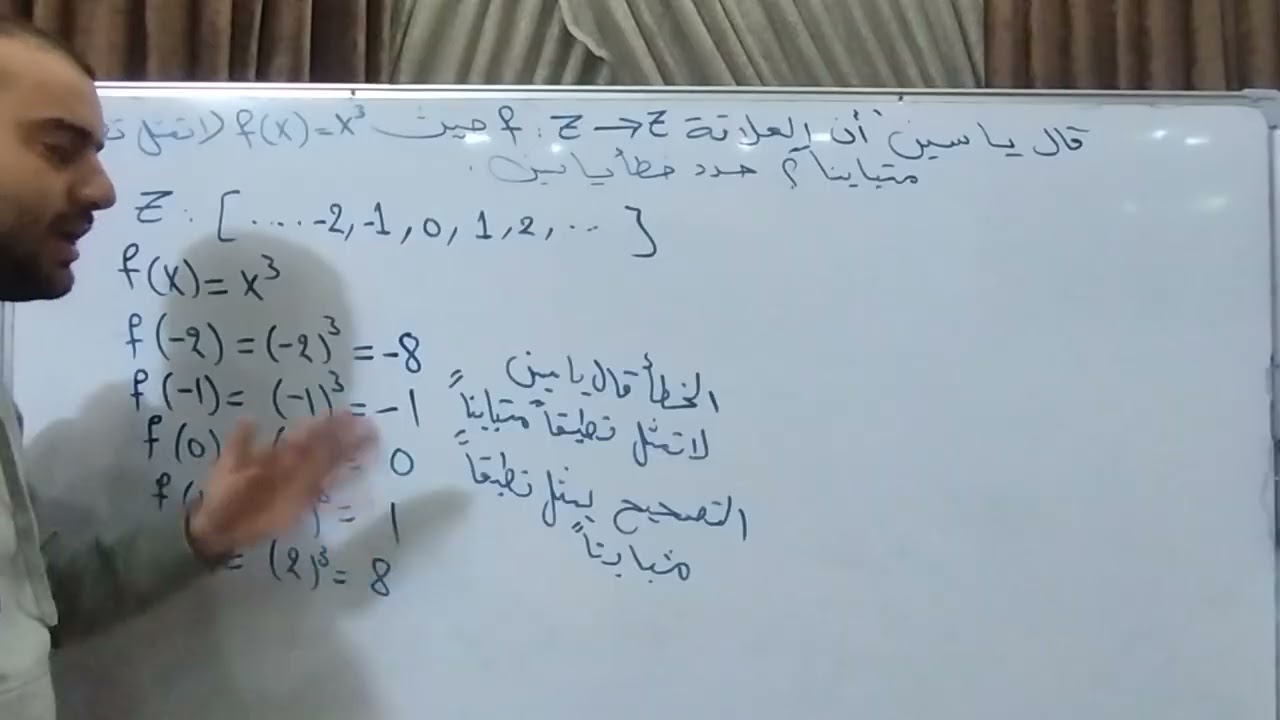 قال ياسين أن العلاقة f: Z → Z حيث f(x) = x³ لا تمثل
متبايناً ؟ حدد خطأ ياسين .
Z : [ .... -2, -1, 0, 1, 2, ... ]
f(x) = x³
f(-2) = (-2)³ = -8
f(-1) = (-1)³ = -1
f(0) = 0
= 1
= (2)³ = 8
الخطأ قال ياسين
لا تمثل تطبيقاً متبايناً
التصحيح يمثل تطبيقاً
متبايناً